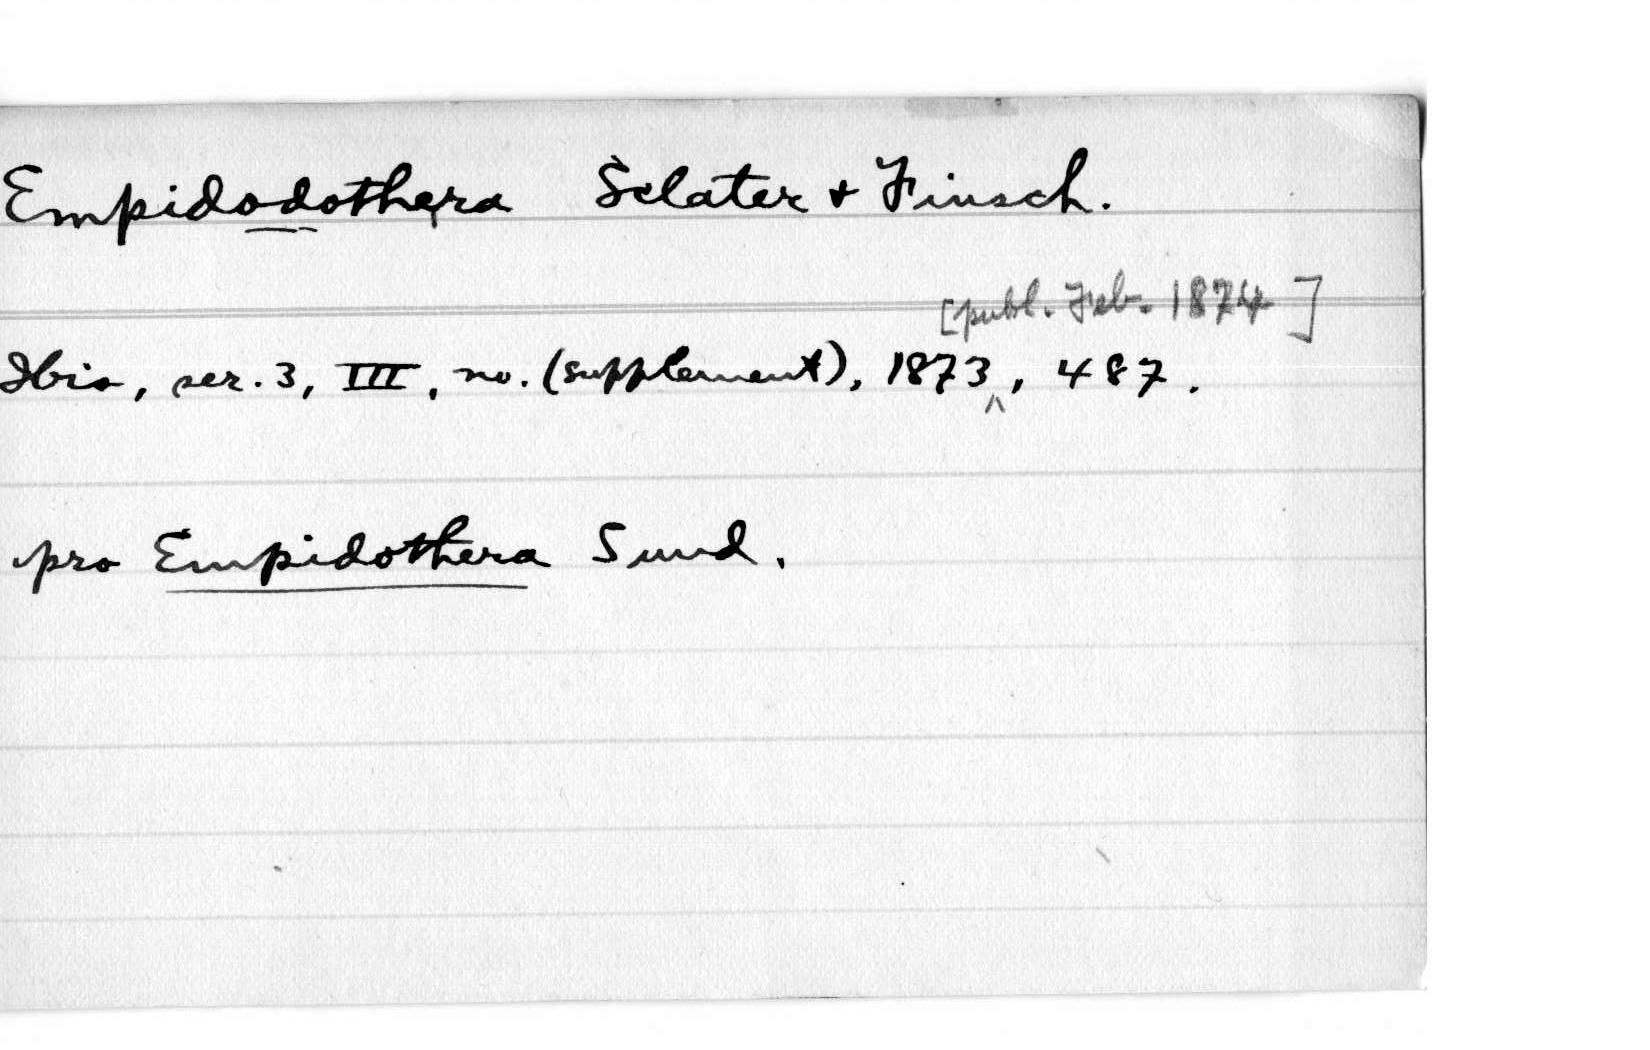 Empidodothera Sclater + Finsch.
[publ. Feb. 1874]
Ibis, ser. 3, III, no. (supplement), 1873^, 487.
pro Empidothera Sund.